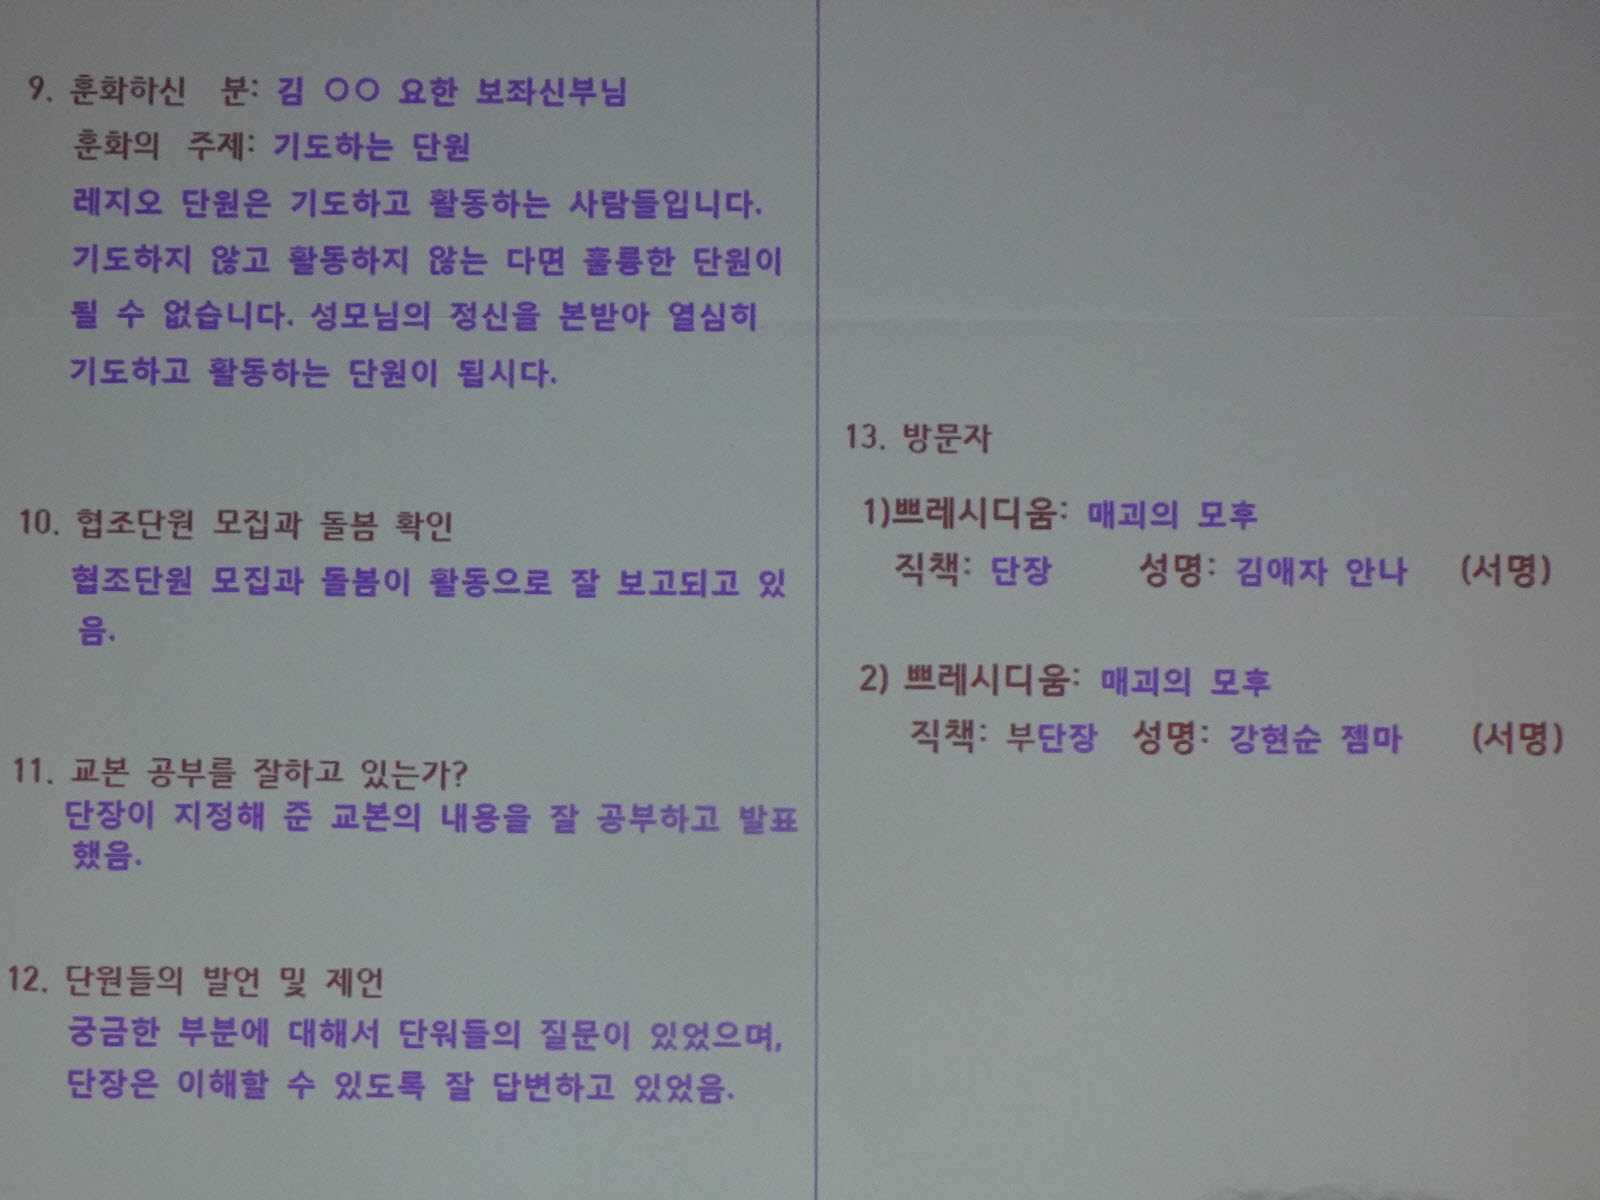 9. 훈화하신 분: 김 ○○ 요한 보좌신부님
훈화의 주제: 기도하는 단원
레지오 단원은 기도하고 활동하는 사람들입니다.
기도하지 않고 활동하지 않는 다면 훌륭한 단원이
될 수 없습니다. 성모님의 정신을 본받아 열심히
기도하고 활동하는 단원이 됩시다.
10. 협조단원 모집과 돌봄 확인
협조단원 모집과 돌봄이 활동으로 잘 보고되고 있
음.
11. 교본 공부를 잘하고 있는가?
단장이 지정해 준 교본의 내용을 잘 공부하고 발표
했음.
12. 단원들의 발언 및 제언
궁금한 부분에 대해서 단워들의 질문이 있었으며,
단장은 이해할 수 있도록 잘 답변하고 있었음.
13. 방문자
1)쁘레시디움: 매괴의 모후
직책: 단장 성명: 김애자 안나 (서명)
2) 쁘레시디움: 매괴의 모후
직책: 부단장 성명: 강현순 젬마 (서명)